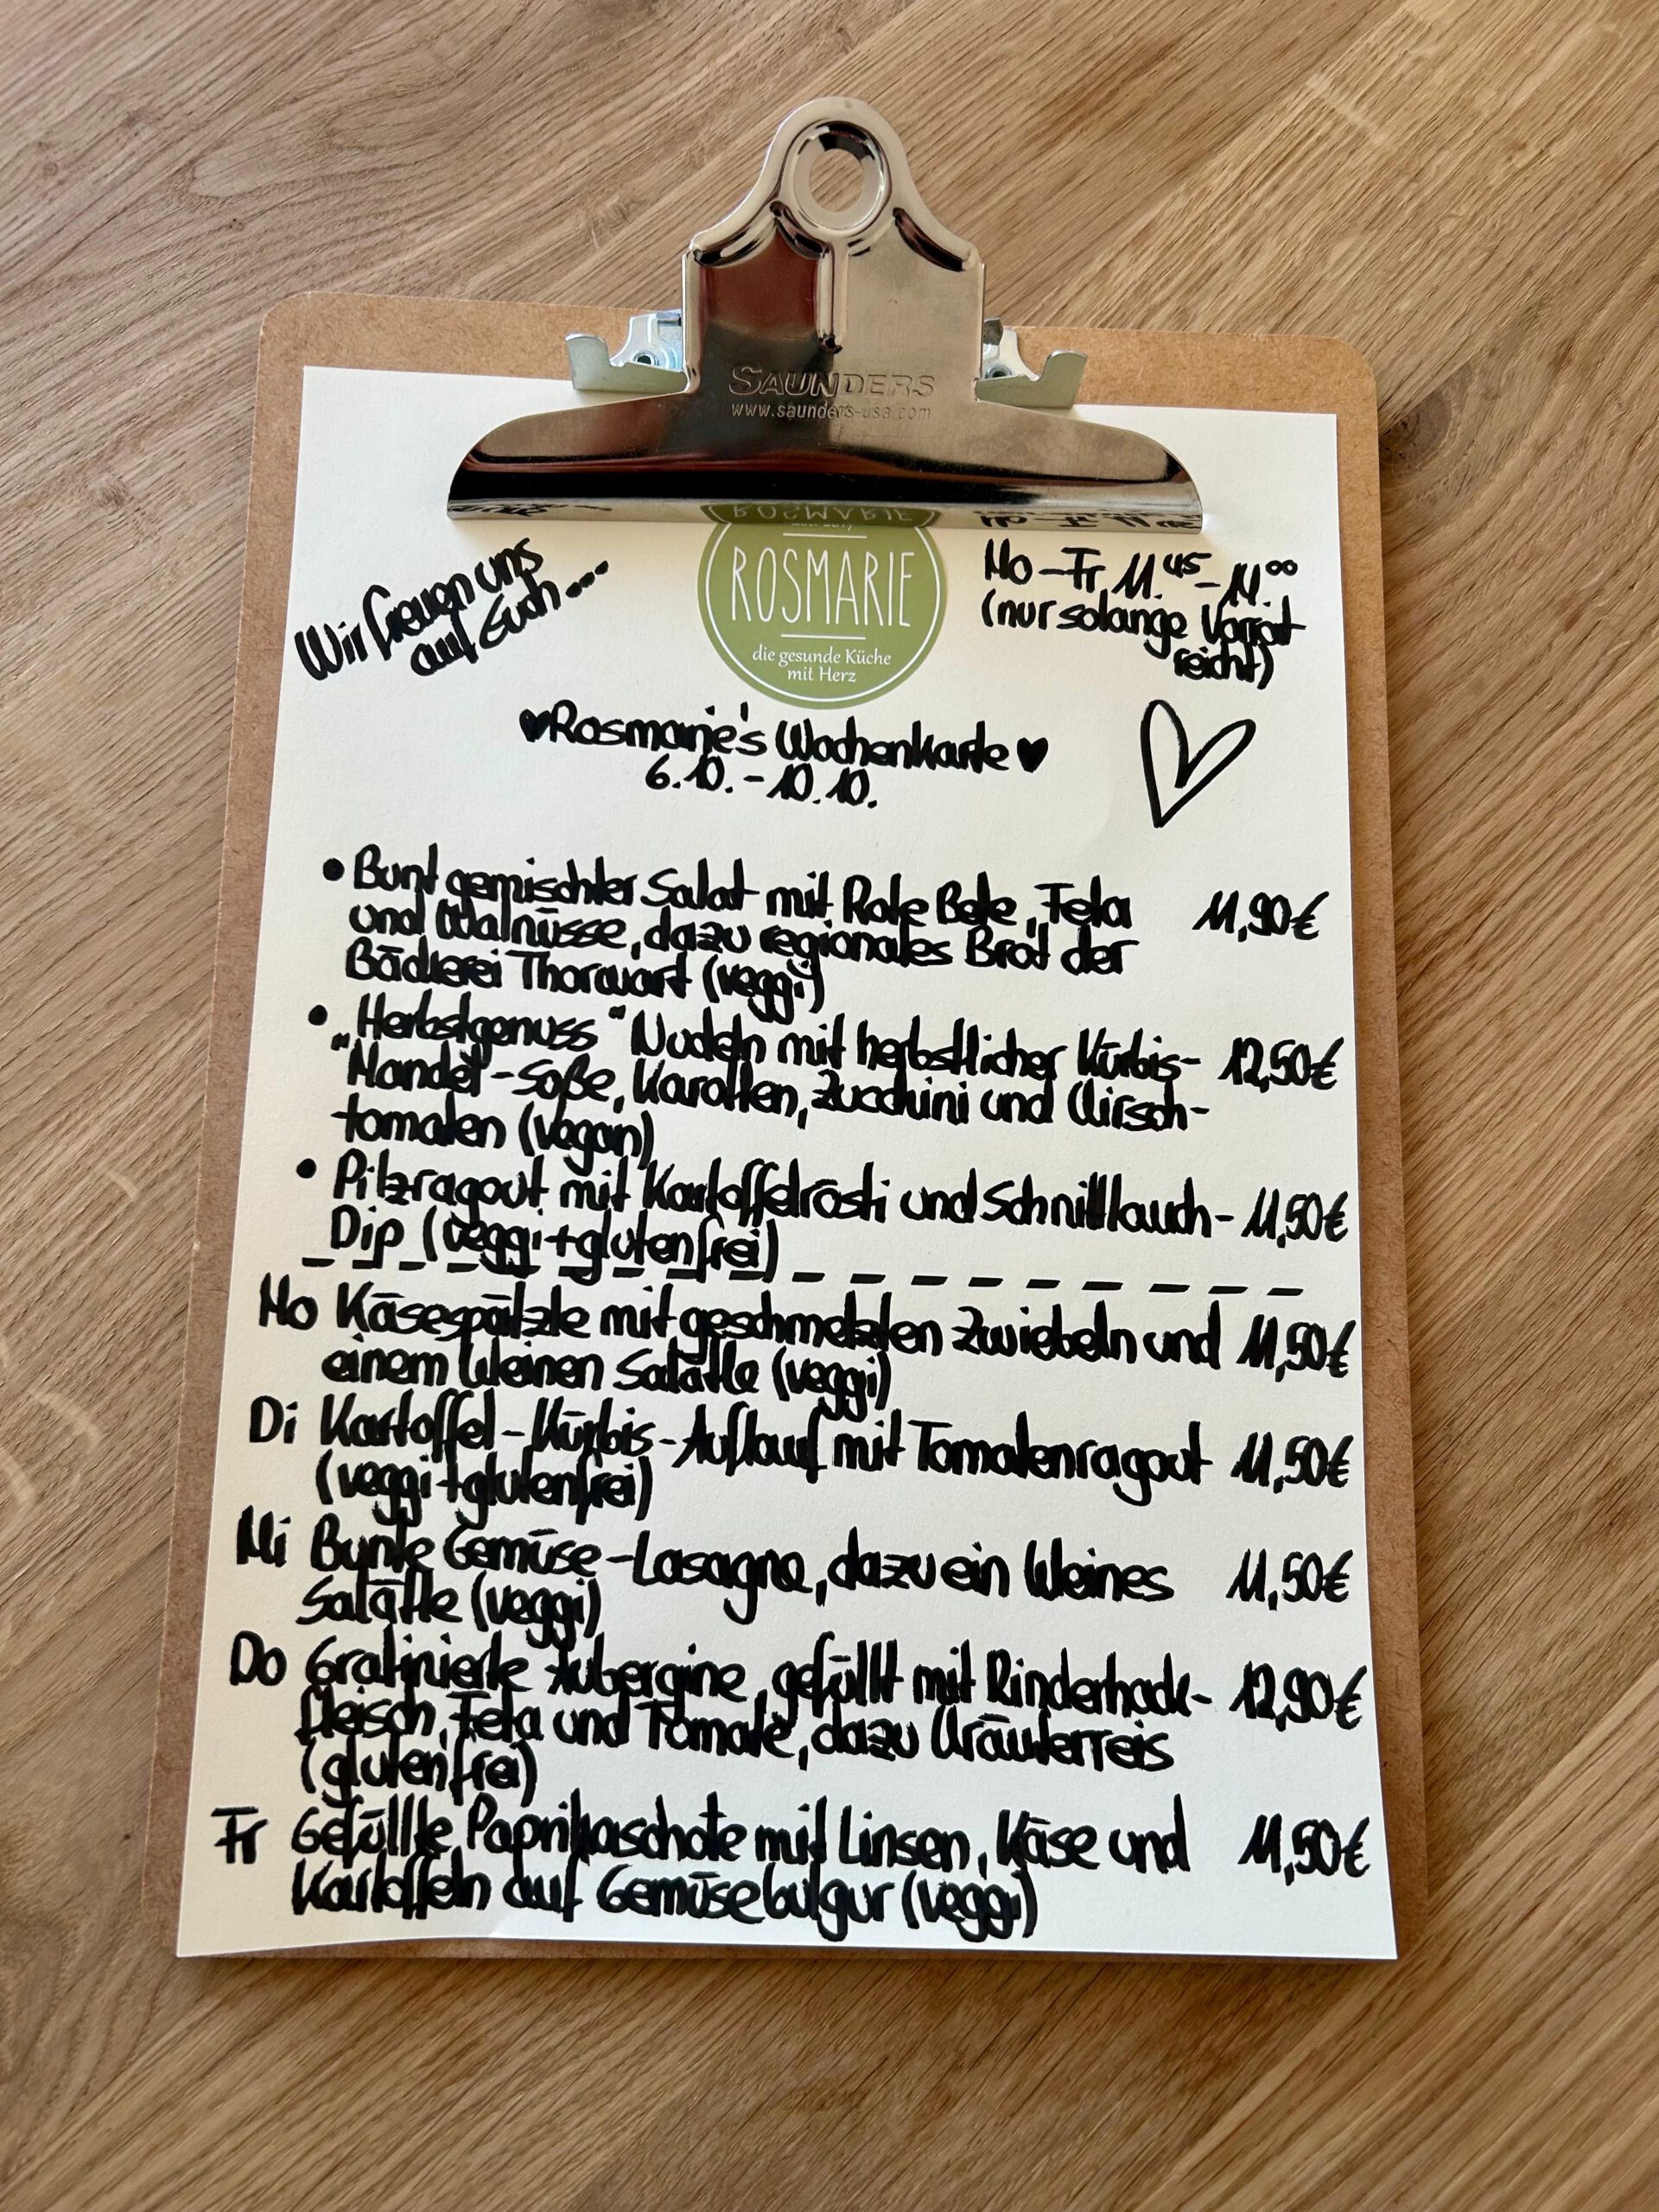 SAUNDERS
www.saunders-usa.com
ROSMARIE
die gesunde Küche
mit Herz
Wir freuen uns
auf Euch...
Mo-Fr 11.45-14.00
(nur solange Vorrat
reicht)
♥Rosmarie's Wochenkarte♥
6.10.-10.10.
• Bunt gemischter Salat mit Rote Bete, Feta 11,90€
und Walnüsse, dazu regionales Brot der
Bäckerei Thorwart (veggi)
• „Herbstgenuss" Nudeln mit herbstlicher Kürbis- 12,50€
Mandel-Soße, Karotten, Zucchini und Kirsch-
tomaten (vegan)
• Pilzragout mit Kartoffelrösti und Schnittlauch- 11,50€
Dip (veggi+glutenfrei)
Mo Käsespätzle mit geschmelzten Zwiebeln und 11,50€
einem kleinen Salätle (veggi)
Di Kartoffel-Kürbis-Auflauf mit Tomatenragout 11,50€
(veggi+glutenfrei)
Mi Bunte Gemüse-Lasagne, dazu ein kleines 11,50€
Salätle (veggi)
Do Gratinierte Aubergine, gefüllt mit Rinderhack- 12,90€
fleisch, Feta und Tomate, dazu Kräuterreis
(glutenfrei)
Fr Gefüllte Paprikaschote mit Linsen, Käse und 11,50€
Kartoffeln auf Gemüsebulgur (veggi)